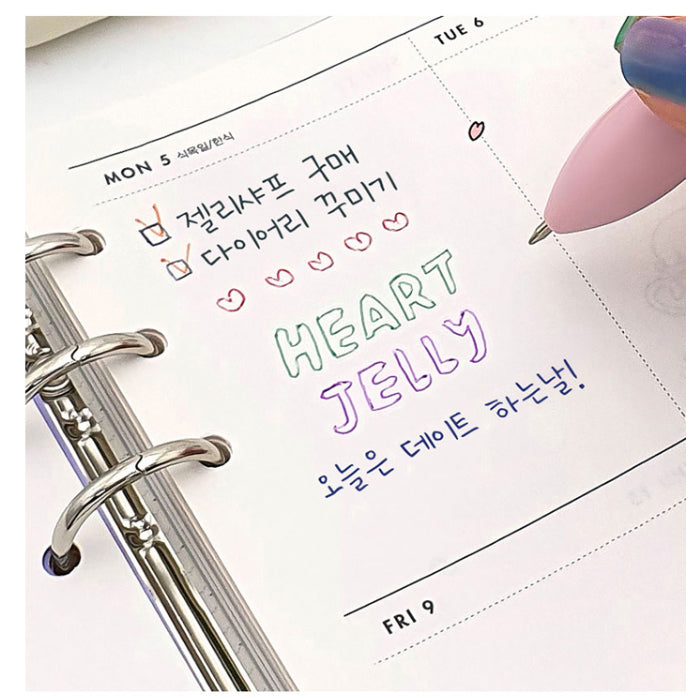 TUE 6
MON 5 식목일/한식
젤리샤프 구매
다이어리 꾸미기
HEART
JELLY
오늘은 데이트 하는날!
FRI 9